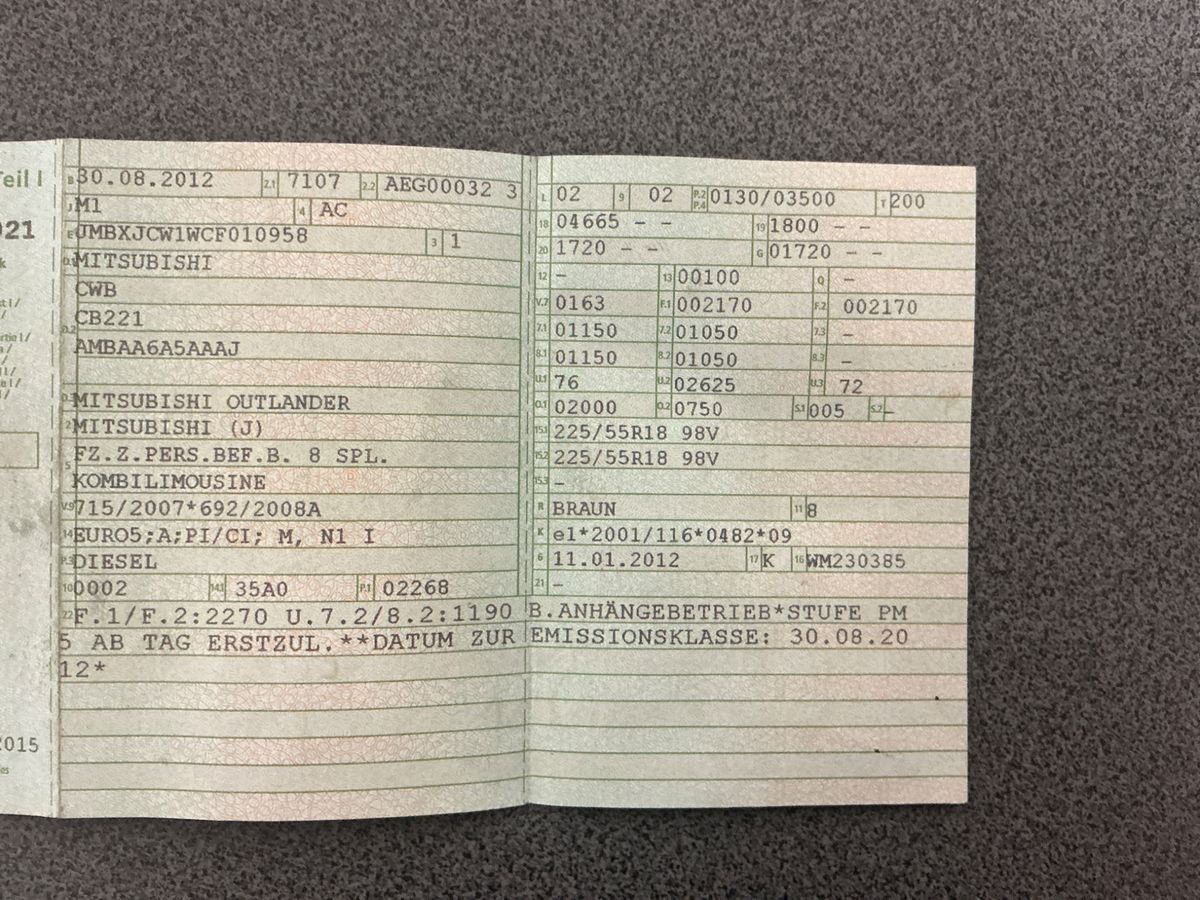 Teil I
021
2015
B 30.08.2012 2.1 7107 2.2 AEG00032 3
J M1 4 AC
E JMBXJCW1WCF010958 3 1
D.1 MITSUBISHI
CWB
D.2 CB221
AMBAA6A5AAAJ
D.3 MITSUBISHI OUTLANDER
2 MITSUBISHI (J)
5 FZ.Z.PERS.BEF.B. 8 SPL.
KOMBILIMOUSINE
V.9 715/2007*692/2008A
14 EURO5;A;PI/CI; M, N1 I
P.3 DIESEL
10 0002 14.1 35A0 P.1 02268
L 02 9 02 P.2 P.4 0130/03500 T 200
18 04665 - - 19 1800 - -
20 1720 - - G 01720 - -
12 - 13 00100 Q -
V.7 0163 F.1 002170 F.2 002170
7.1 01150 7.2 01050 7.3 -
8.1 01150 8.2 01050 8.3 -
U.1 76 U.2 02625 U.3 72
O.1 02000 O.2 0750 S.1 005 S.2 -
15.1 225/55R18 98V
15.2 225/55R18 98V
15.3 -
R BRAUN 11 8
K e1*2001/116*0482*09
6 11.01.2012 17 K 16 WM230385
21 -
22 F.1/F.2:2270 U.7.2/8.2:1190 B.ANHÄNGEBETRIEB*STUFE PM
5 AB TAG ERSTZUL.**DATUM ZUR EMISSIONSKLASSE: 30.08.20
12*